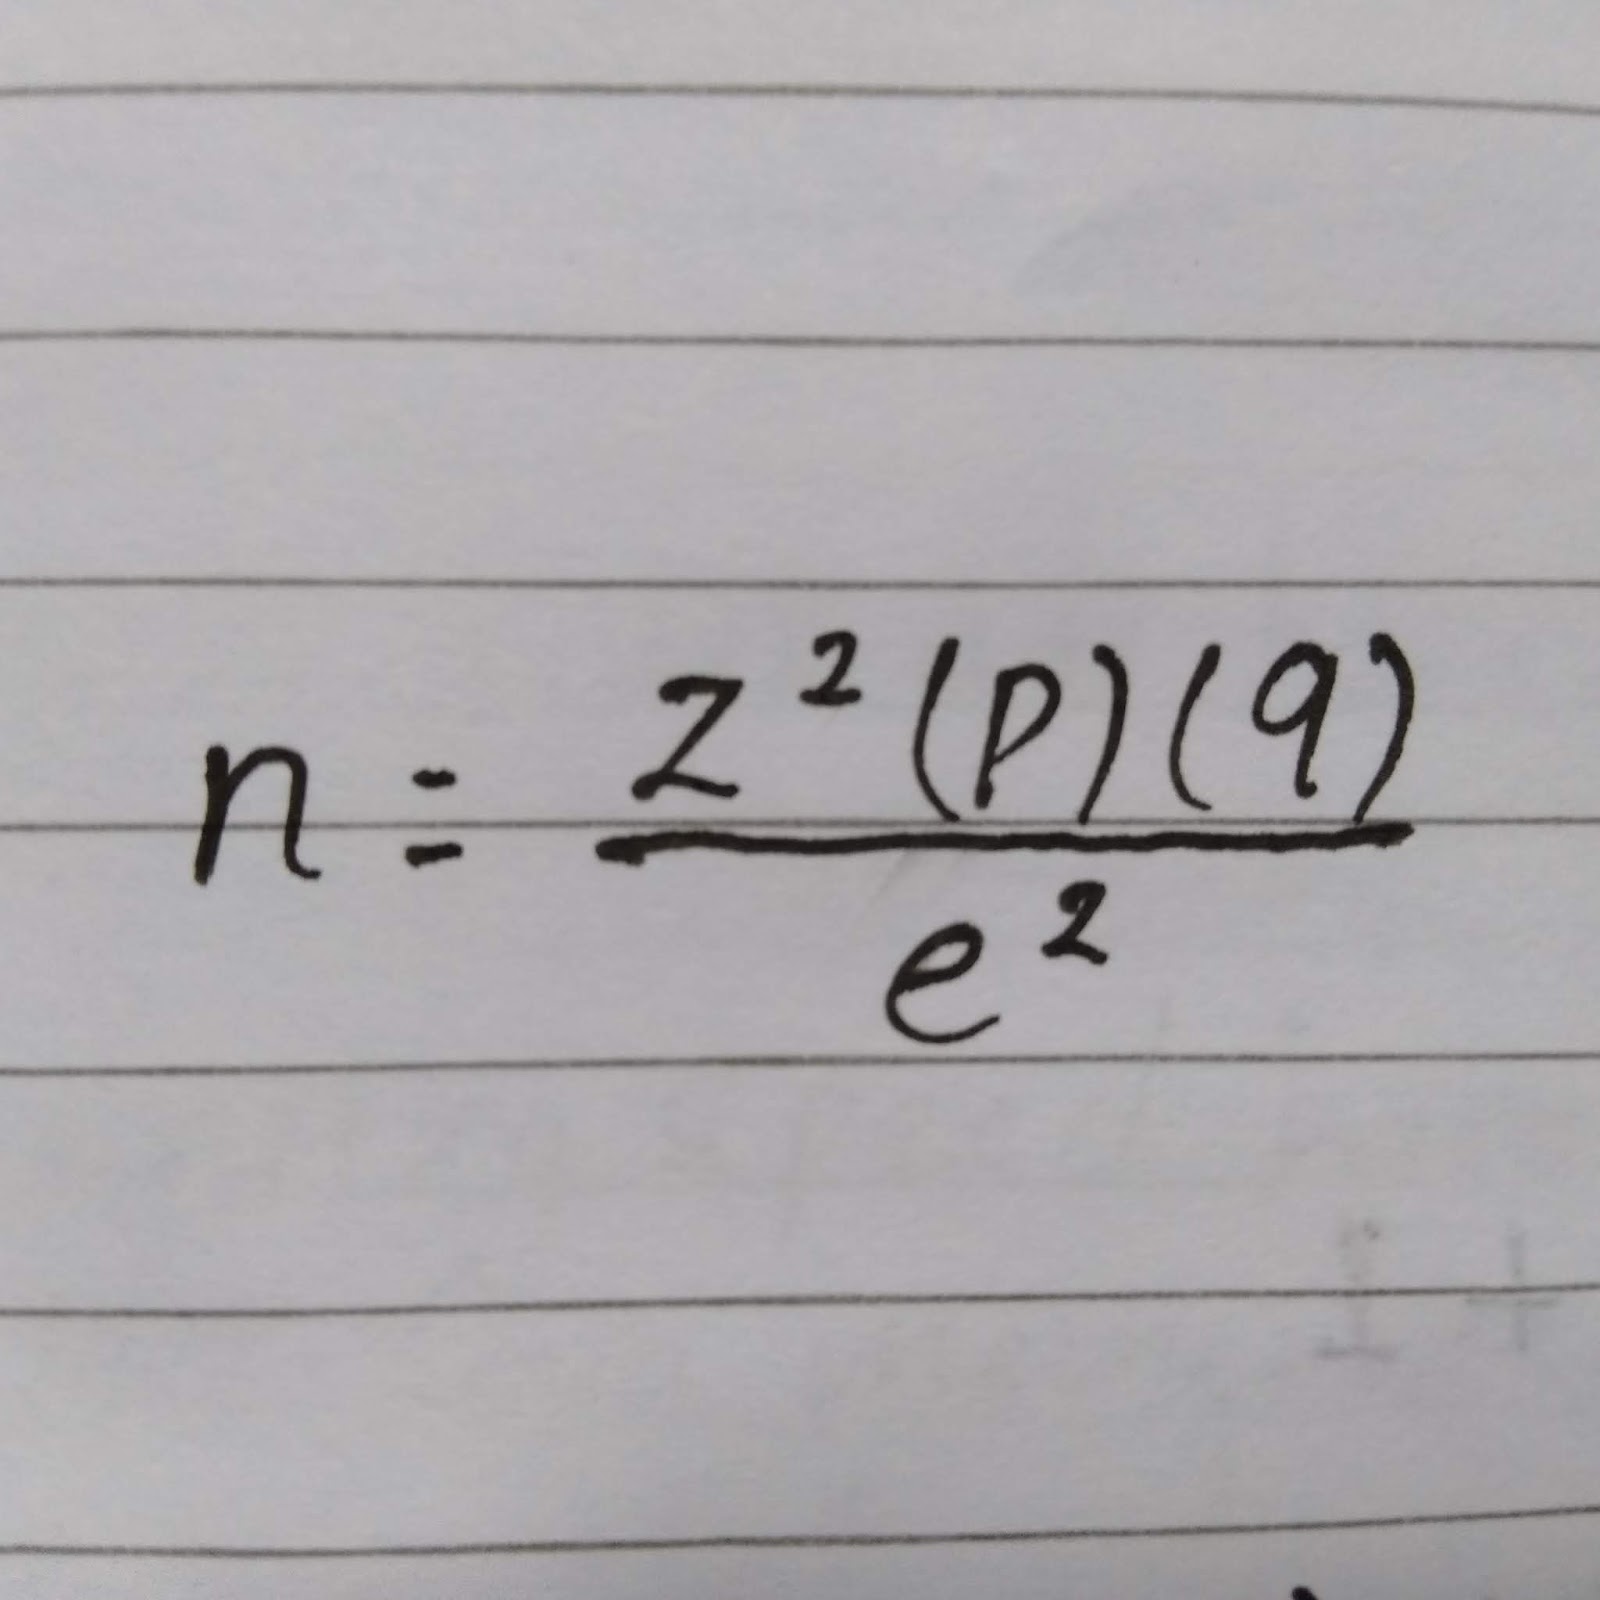 n = z²(p)(q)
e²